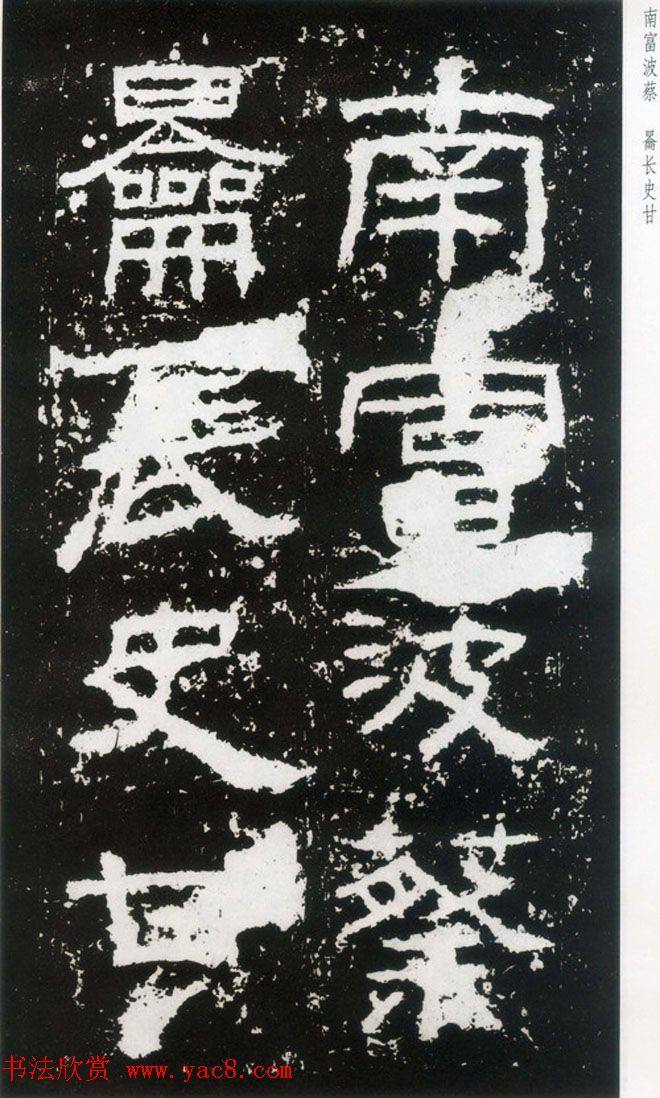 南富波蔡
𣆶长史甘
南富波蔡 𣆶长史甘
书法欣赏 www.yac8.com